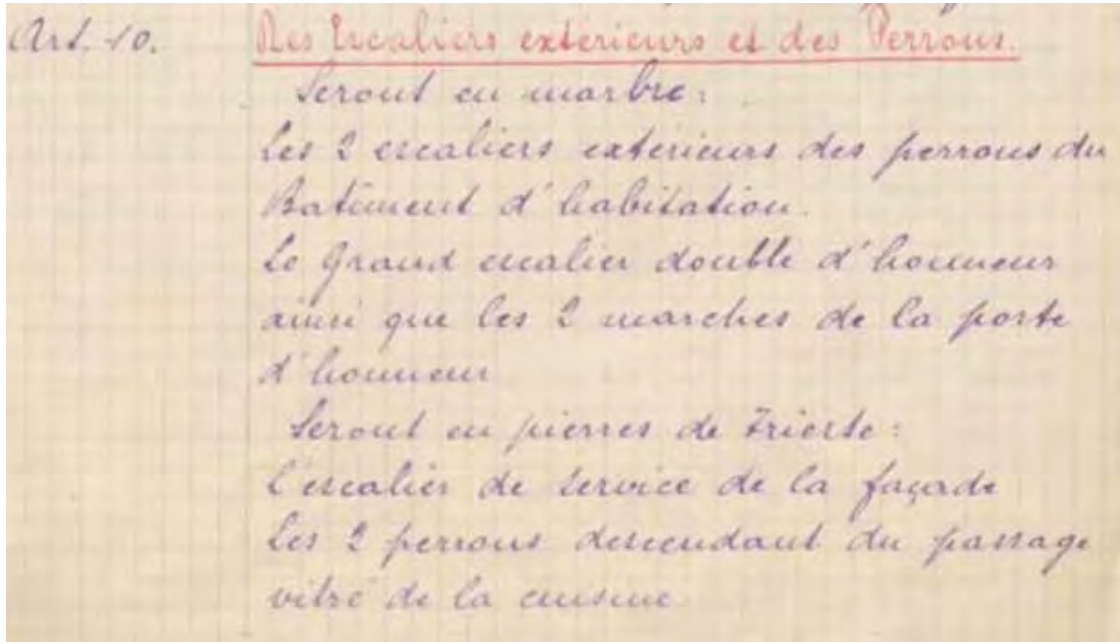 Art. 10. Des Escaliers extérieurs et des Perrons.
Seront en marbre:
Les 2 escaliers extérieurs des perrons du
Batiment d'habitation.
Le Grand escalier double d'honneur
ainsi que les 2 marches de la porte
d'honneur
Seront en pierres de Trieste:
L'escalier de service de la façade
Les 2 perrons descendant du passage
vitré de la cuisine